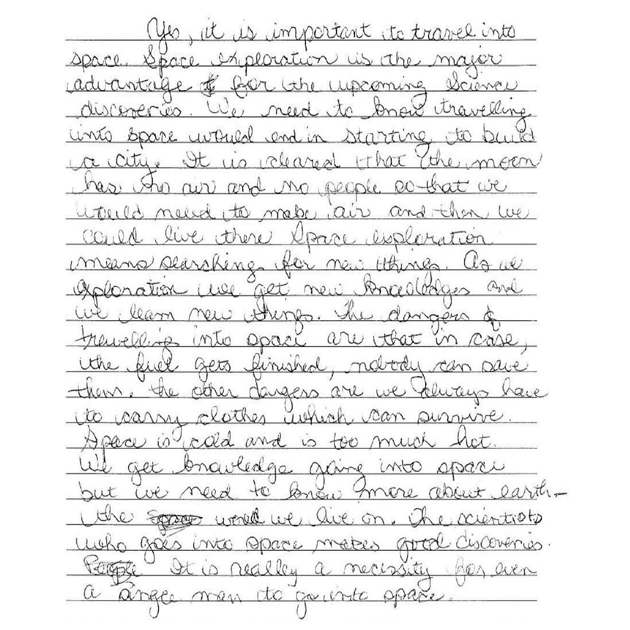 Yes, it is important to travel into
space. Space exploration is the major
advantage for the upcoming Science
discoveries. We need to know travelling
into space would end in starting to build
a city. It is cleared that the moon
has no air and no people so that we
would need to make air and then we
could live there Space exploration
means searching for new things. As we
exploration we get new knowledges and
we learn new things. The dangers of
travelling into space are that in case,
the fuel gets finished, nobody can save
them. the other dangers are we always have
to carry clothes which can survive.
Space is cold and is too much hot.
We get knowledge going into space
but we need to know more about earth-
the world we live on. The scientists
who goes into space makes good discoveries.
It is really a necessity for even
a man to go into space.